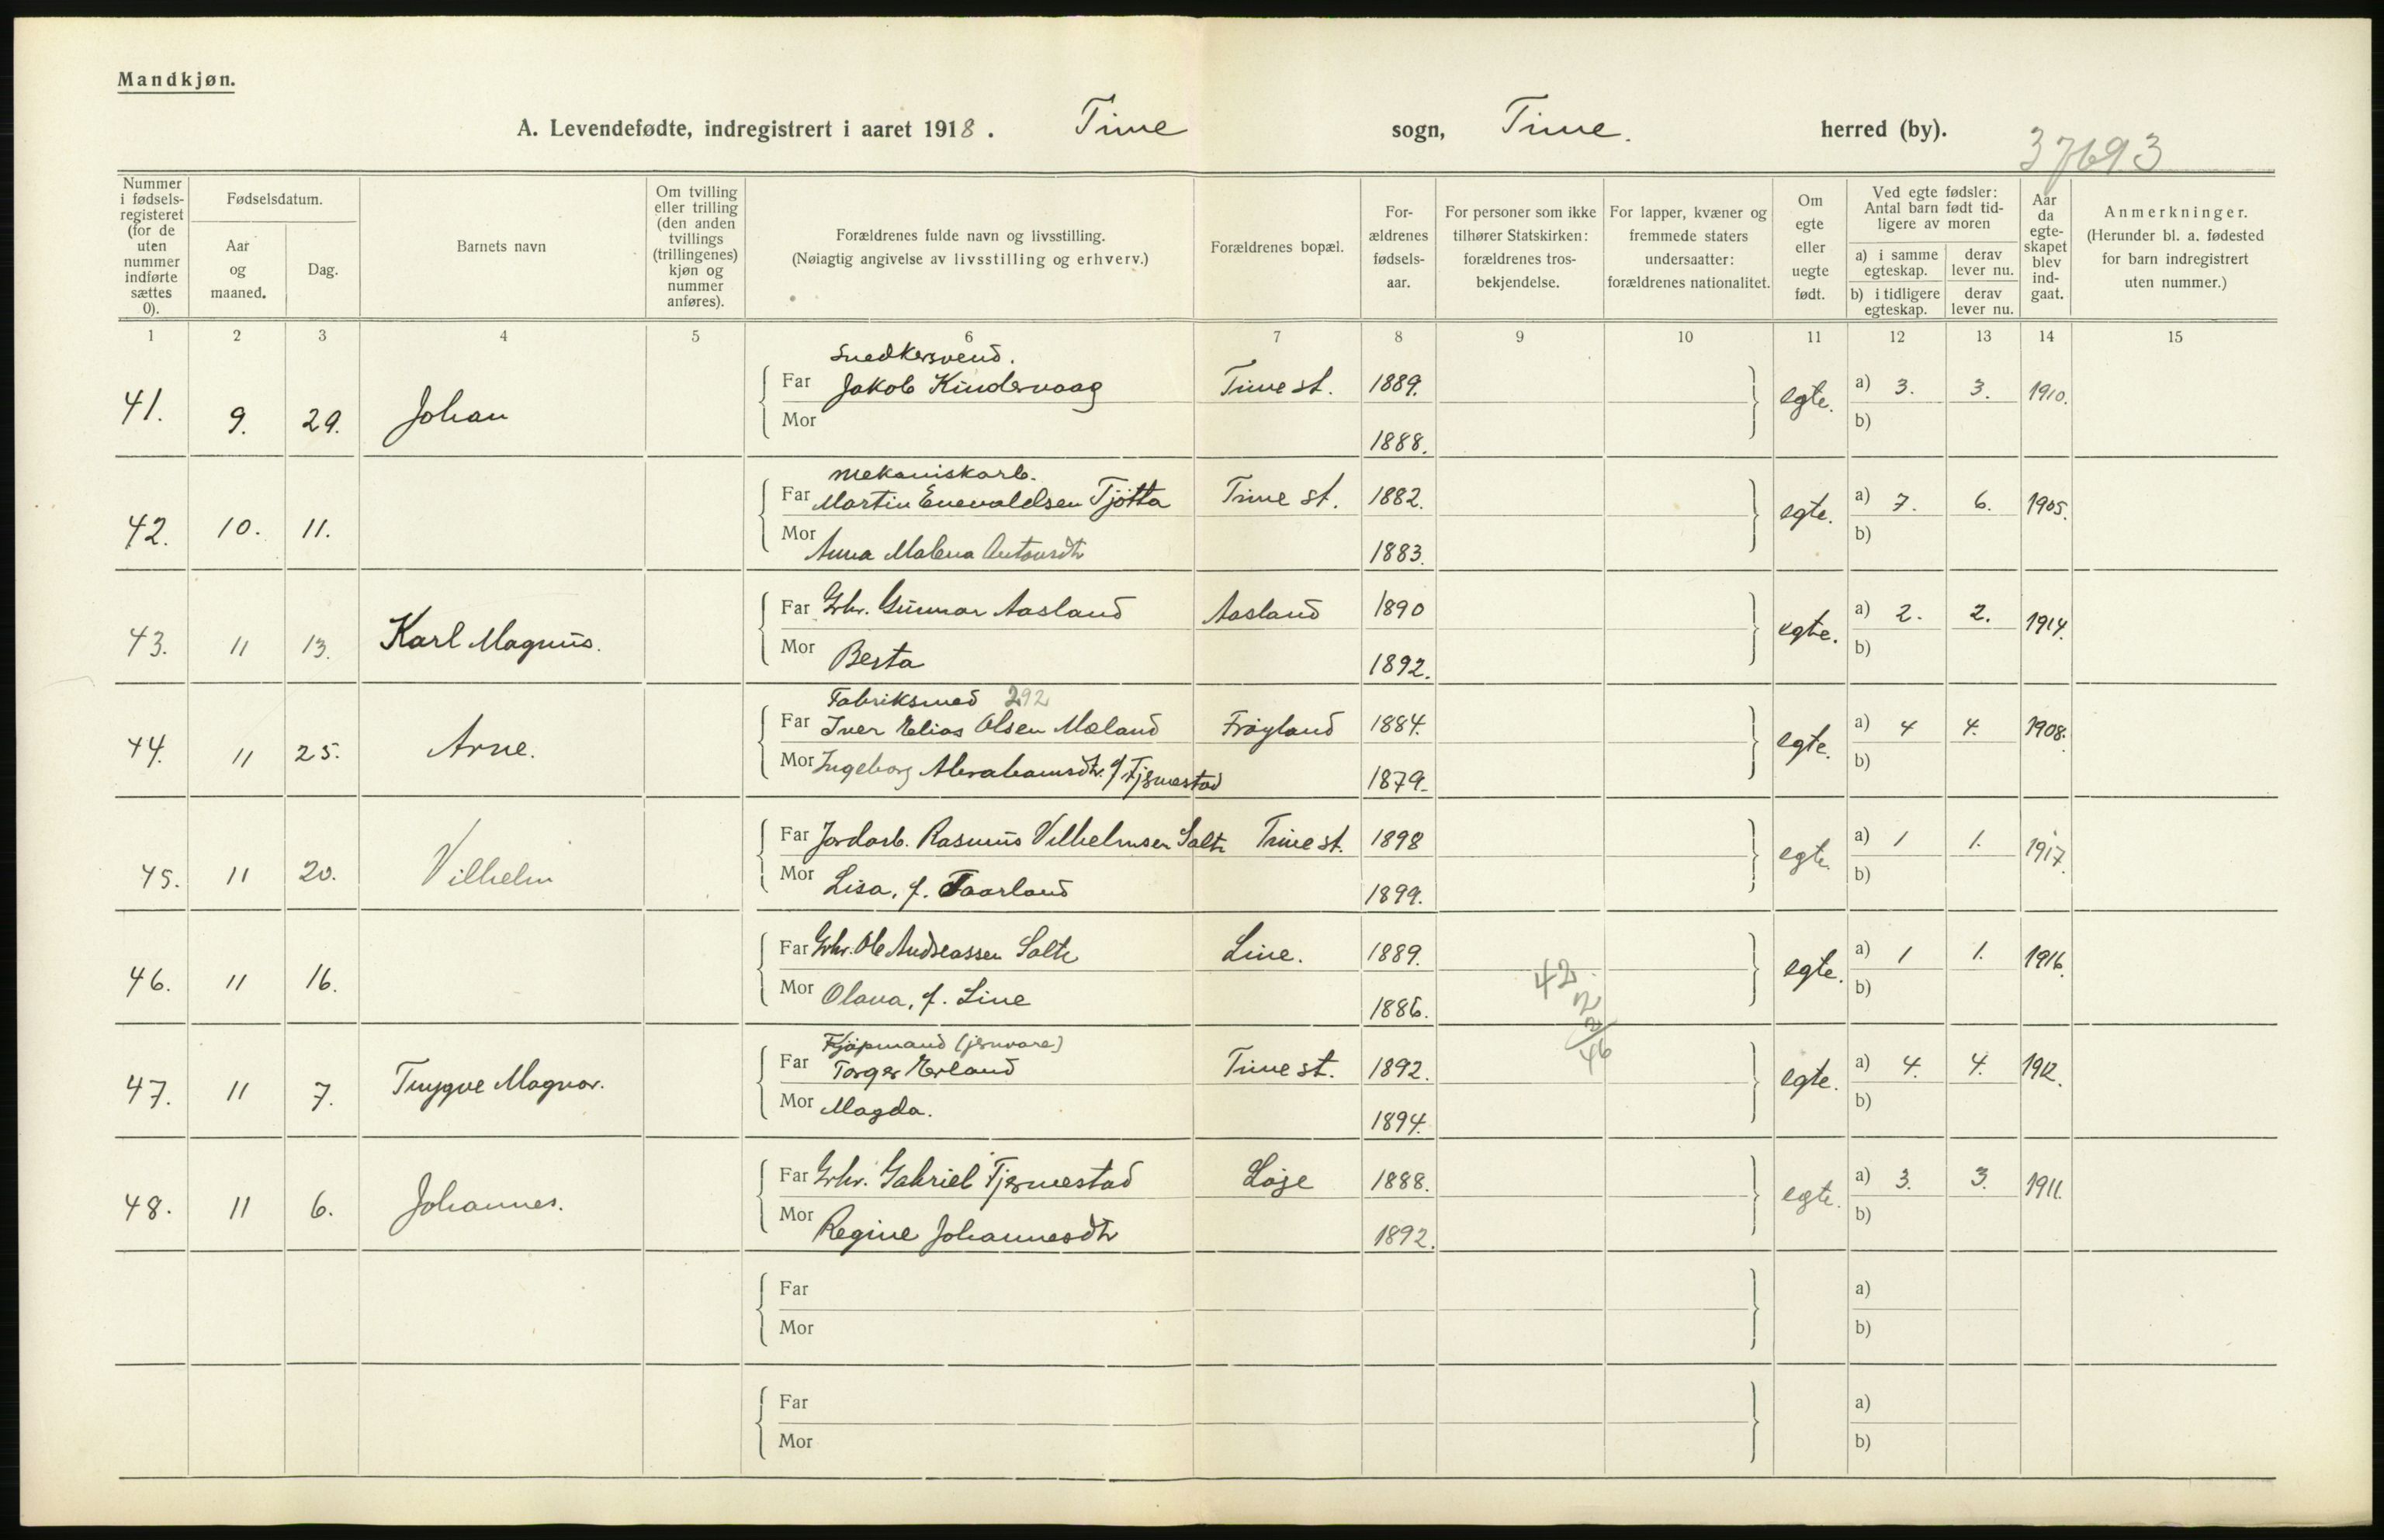 Mandkjøn.
A. Levendefødte, indregistrert i aaret 1918. Time sogn, Time. herred (by).
37693
Nummer i fødselsregisteret (for de uten nummer indførte sættes 0).
Fødselsdatum.
Aar og maaned.
Dag.
Barnets navn
Om tvilling eller trilling (den anden tvillings (trillingenes) kjøn og nummer anføres).
Forældrenes fulde navn og livsstilling.
(Nøiagtig angivelse av livsstilling og erhverv.)
Forældrenes bopæl.
Forældrenes fødselsaar.
For personer som ikke tilhører Statskirken: forældrenes trosbekjendelse.
For lapper, kvæner og fremmede staters undersaatter: forældrenes nationalitet.
Om egte eller uegte født.
Ved egte fødsler: Antal barn født tidligere av moren
a) i samme egteskap.
derav lever nu.
b) i tidligere egteskap.
derav lever nu.
Aar da egteskapet blev indgaat.
Anmerkninger.
(Herunder bl. a. fødested for barn indregistrert uten nummer.)
1 2 3 4 5 6 7 8 9 10 11 12 13 14 15
Snedkersvend.
41. 9. 29. Johan Far Jakob Kindervaag Time st. 1889. egte. a) 3. 3. 1910.
Mor 1888. b)
Mekaniskarb.
42. 10. 11. Far Martin Enevaldsen Tjötta Time st. 1882. egte. a) 7. 6. 1905.
Mor Anna Malena Antonsdtr 1883. b)
43. 11 13. Karl Magnus. Far Grbr. Gunnar Aasland Aasland 1890 egte. a) 2. 2. 1914.
Mor Berta 1892. b)
Fabriksmed 292
44. 11 25. Arne. Far Iver Elias Olsen Mæland Fröyland 1884. egte. a) 4 4. 1908.
Mor Ingeborg Abrahamsdtr. f Tjemestad 1879. b)
45. 11 20. Vilhelm Far Jordarb. Rasmus Vilhelmsen Salte Time st. 1898 egte. a) 1 1. 1917.
Mor Lisa, f. Taarland 1899. b)
46. 11 16. Far Grbr. Ole Andreassen Salte Line. 1889. egte. a) 1 1. 1916.
Mor Olava, f. Line 1886. b)
42
2
2
46
Kjöpmand (jernvare)
47. 11 7. Trygve Magnar. Far Torger Erland Time st. 1892. egte. a) 4. 4. 1912.
Mor Magda. 1894. b)
48. 11 6. Johannes. Far Grbr. Gabriel Tjemestad Löge 1888. egte. a) 3. 3. 1911.
Mor Regine Johannesdtr 1892. b)
Far a)
Mor b)
Far a)
Mor b)